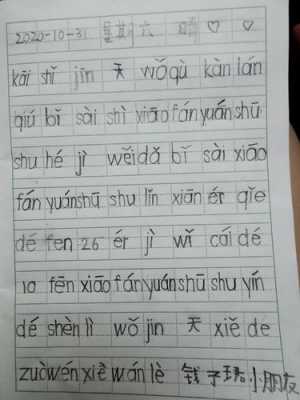 2020-10-31 星期六 晴 ♡ ♡
kāi shǐ jīn 天 wǒ qù kàn lán
qiú bǐ sài shì xiāo fán yuán shū
shu hé jì wěi dǎ bǐ sài xiāo
fán yuán shū shu lǐn xiān ér qiě
dé fen 26 ér jì wěi cái dé
10 fēn xiāo fán yuán shū shu yín
dé shèn lì wǒ jin 天 xiě de
zuò wén xiě wán lè 钱子 小朋友